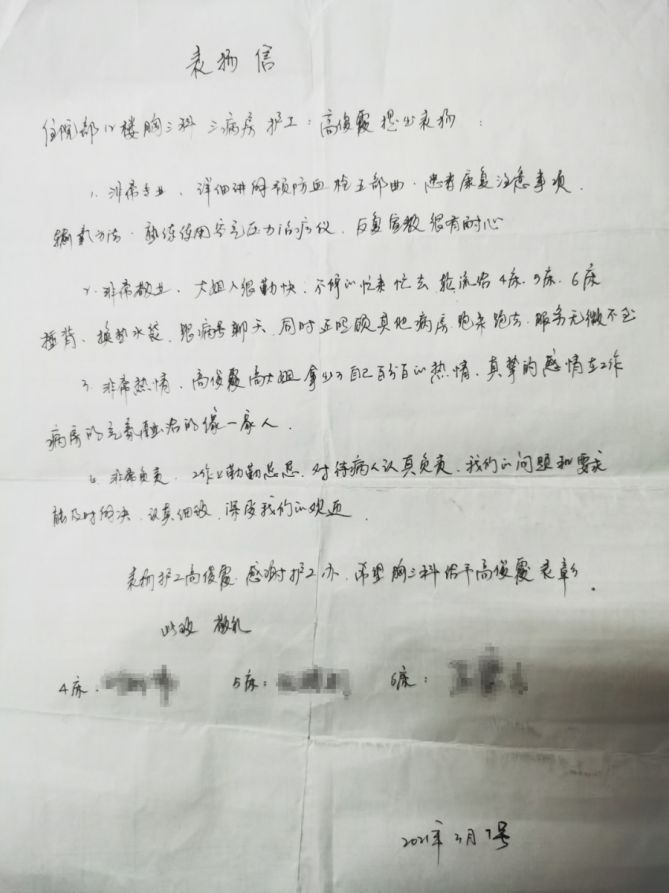 表扬信
住院部12楼胸三科三病房护工：高俊霞提出表扬：
1. 非常专业、详细讲解预防血栓五部曲．患者康复注意事项、
辅氧方法．熟练使用空气压力治疗仪、反复宣教很有耐心
2. 非常敬业、大姐人很勤快．不停的忙来忙去轮流给4床、5床、6床
捶背、换热水袋、跟病号聊天、同时还照顾其他病房跑来跑去．服务无微不至
3. 非常热情、高俊霞高大姐拿出了自己百分百的热情、真挚的感情在工作
病房的兄弟相处的像一家人．
4. 非常负责、工作上勤勤恳恳、对待病人认真负责．我们的问题和要求
能及时解决、认真细致、深受我们的欢迎．
表扬护工高俊霞．感谢护工办．希望胸三科给予高俊霞表彰．
此致 敬礼
4床： 5床： 6床：
2021年3月7号